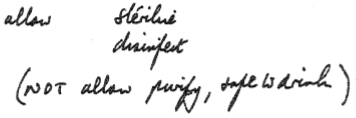 allow sterilise
disinfect
(NOT allow purify, safe to drink)